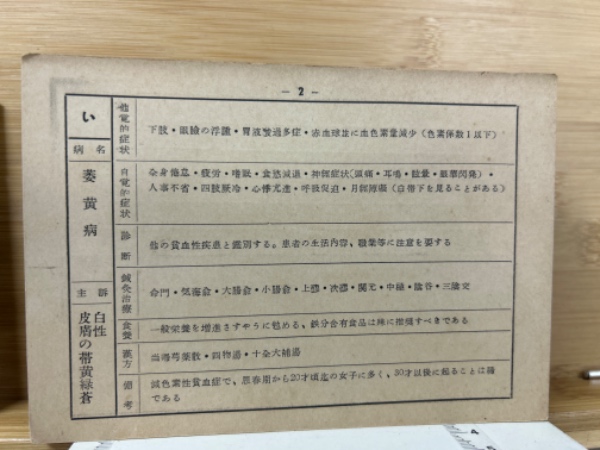 - 2 -
い
病名
萎黄病
主訴
皮膚の帯黄緑蒼
白性
他覚的症状
下肢・眼瞼の浮腫・胃液酸過多症・赤血球並に血色素量減少(色素係数1以下)
自覚的症状
全身倦怠・疲労・嗜眠・食慾減退・神経症状(頭痛・耳鳴・眩暈・眼華閃発)・
人事不省・四肢厥冷・心悸亢進・呼吸促迫・月経障碍(白帯下を見ることがある)
診断
他の貧血性疾患と鑑別する。患者の生活内容、職業等に注意を要する
鍼灸治療
命門・気海兪・大腸兪・小腸兪・上髎・次髎・関元・中極・陰谷・三陰交
食養
一般栄養を増進さすやうに勉める、鉄分含有食品は殊に推奨すべきである
漢方
当帰芍薬散・四物湯・十全大補湯
備考
減色素性貧血症で、思春期から20才頃迄の女子に多く、30才以後に起ることは稀
である